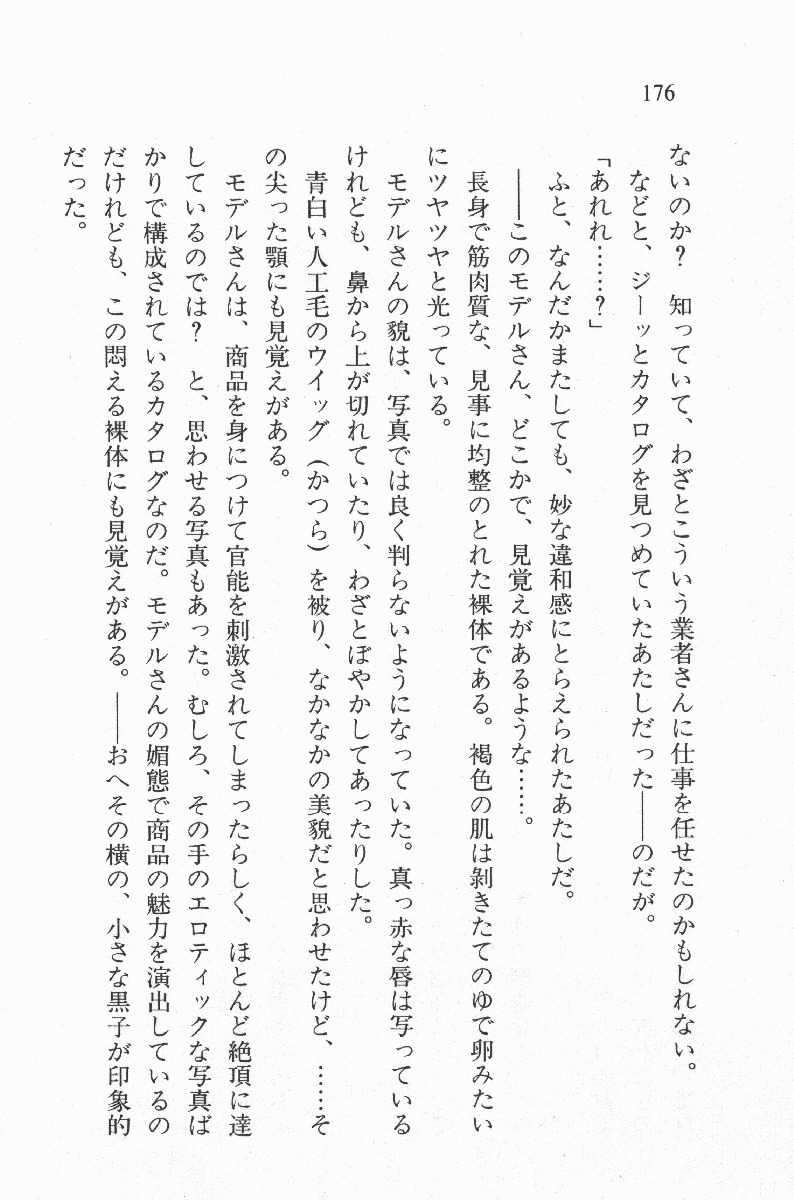 176
ないのか?　知っていて、わざとこういう業者さんに仕事を任せたのかもしれない。
などと、ジーッとカタログを見つめていたあたしだった――のだが。
「あれれ……?」
ふと、なんだかまたしても、妙な違和感にとらえられたあたしだ。
――このモデルさん、どこかで、見覚えがあるような……。
長身で筋肉質な、見事に均整のとれた裸体である。褐色の肌は剝きたてのゆで卵みたい
にツヤツヤと光っている。
モデルさんの貌は、写真では良く判らないようになっていた。真っ赤な唇は写っている
けれども、鼻から上が切れていたり、わざとぼやかしてあったりした。
青白い人工毛のウイッグ(かつら)を被り、なかなかの美貌だと思わせたけど、……そ
の尖った顎にも見覚えがある。
モデルさんは、商品を身につけて官能を刺激されてしまったらしく、ほとんど絶頂に達
しているのでは?　と、思わせる写真もあった。むしろ、その手のエロティックな写真ば
かりで構成されているカタログなのだ。モデルさんの媚態で商品の魅力を演出しているの
だけれども、この悶える裸体にも見覚えがある。――おへその横の、小さな黒子が印象的
だった。